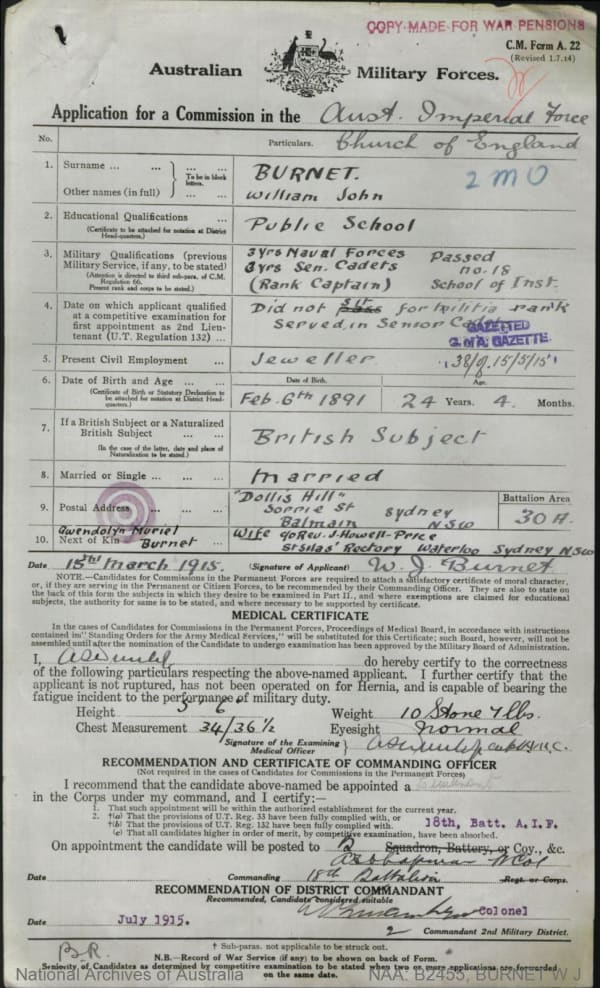 COPY MADE FOR WAR PENSIONS
C.M. Form A. 22
(Revised 1.7.14)
Australian Military Forces.
Application for a Commission in the Aust. Imperial Force
No. Particulars. Church of England
1. Surname ... ... ... ... BURNET.
To be in block letters. 2 MO
Other names (in full) ... ... William John
2. Educational Qualifications ... Public School
(Certificate to be attached for notation at District Head-quarters.)
3. Military Qualifications (previous Military Service, if any, to be stated)
(Attention is directed to third sub-para. of C.M. Regulation 66. Present rank and corps to be stated.)
3 yrs Naval Forces Passed
3 yrs Sen. Cadets no. 18
(Rank Captain) School of Inst.
4. Date on which applicant qualified at a competitive examination for first appointment as 2nd Lieutenant (U.T. Regulation 132) ...
Did not sit for militia rank
Served in Senior Cadets
GAZETTED
C of A. GAZETTE.
5. Present Civil Employment ... Jeweller 15/5/15
6. Date of Birth and Age ... ...
(Certificate of Birth or Statutory Declaration to be attached for notation at District Head-quarters.)
Date of Birth. Age.
Feb. 6th 1891 24 Years. 4. Months.
7. If a British Subject or a Naturalized British Subject ... ... British Subject
(In the case of the latter, date and place of Naturalization to be stated.)
8. Married or Single ... ... married
9. Postal Address ... ... "Dollis Hill"
Sorrie St Sydney
Balmain NSW
Battalion Area
30A.
10. Next of Kin Gwendolyn Muriel Burnet Wife c/o Rev. J. Howell-Price
St Silas' Rectory Waterloo Sydney NSW
Date 15th March 1915. (Signature of Applicant) W. J. Burnet
NOTE.—Candidates for Commissions in the Permanent Forces are required to attach a satisfactory certificate of moral character,
or, if they are serving in the Permanent or Citizen Forces, to be recommended by their Commanding Officer. They are also to state on
the back of this form the subjects in which they desire to be examined in Part II., and where exemptions are claimed for educational
subjects, the authority for same is to be stated, and where necessary to be supported by certificate.
MEDICAL CERTIFICATE
In the cases of Candidates for Commissions in the Permanent Forces, Proceedings of Medical Board, in accordance with instructions
contained in "Standing Orders for the Army Medical Services," will be substituted for this Certificate; such Board, however, will not be
assembled until after the nomination of the Candidate to undergo examination has been approved by the Military Board of Administration.
I, do hereby certify to the correctness
of the following particulars respecting the above-named applicant. I further certify that the
applicant is not ruptured, has not been operated on for Hernia, and is capable of bearing the
fatigue incident to the performance of military duty.
Height 5 6 Weight 10 Stone 7 lbs.
Chest Measurement 34/36½ Eyesight normal
Signature of the Examining Medical Officer
RECOMMENDATION AND CERTIFICATE OF COMMANDING OFFICER
(Not required in the cases of Candidates for Commissions in the Permanent Forces)
I recommend that the candidate above-named be appointed a
in the Corps under my command, and I certify:—
1. That such appointment will be within the authorized establishment for the current year.
2. †(a) That the provisions of U.T. Reg. 33 have been fully complied with, or
†(b) That the provisions of U.T. Reg. 132 have been fully complied with.
(c) That all candidates higher in order of merit, by competitive examination, have been absorbed.
18th, Batt. A.I.F.
On appointment the candidate will be posted to B Squadron, Battery, or Coy., &c.
Date Commanding 18th Battalion Regt. or Corps.
RECOMMENDATION OF DISTRICT COMMANDANT
Recommended, Candidate considered suitable
Colonel
Date July 1915. 2 Commandant 2nd Military District.
† Sub-paras. not applicable to be struck out.
N.B.—Record of War Service (if any) to be shown on back of Form.
Seniority of Candidates as determined by competitive examination to be stated when two or more applications are forwarded
on the same date.
B.R.
National Archives of Australia NAA: B2455, BURNET W J